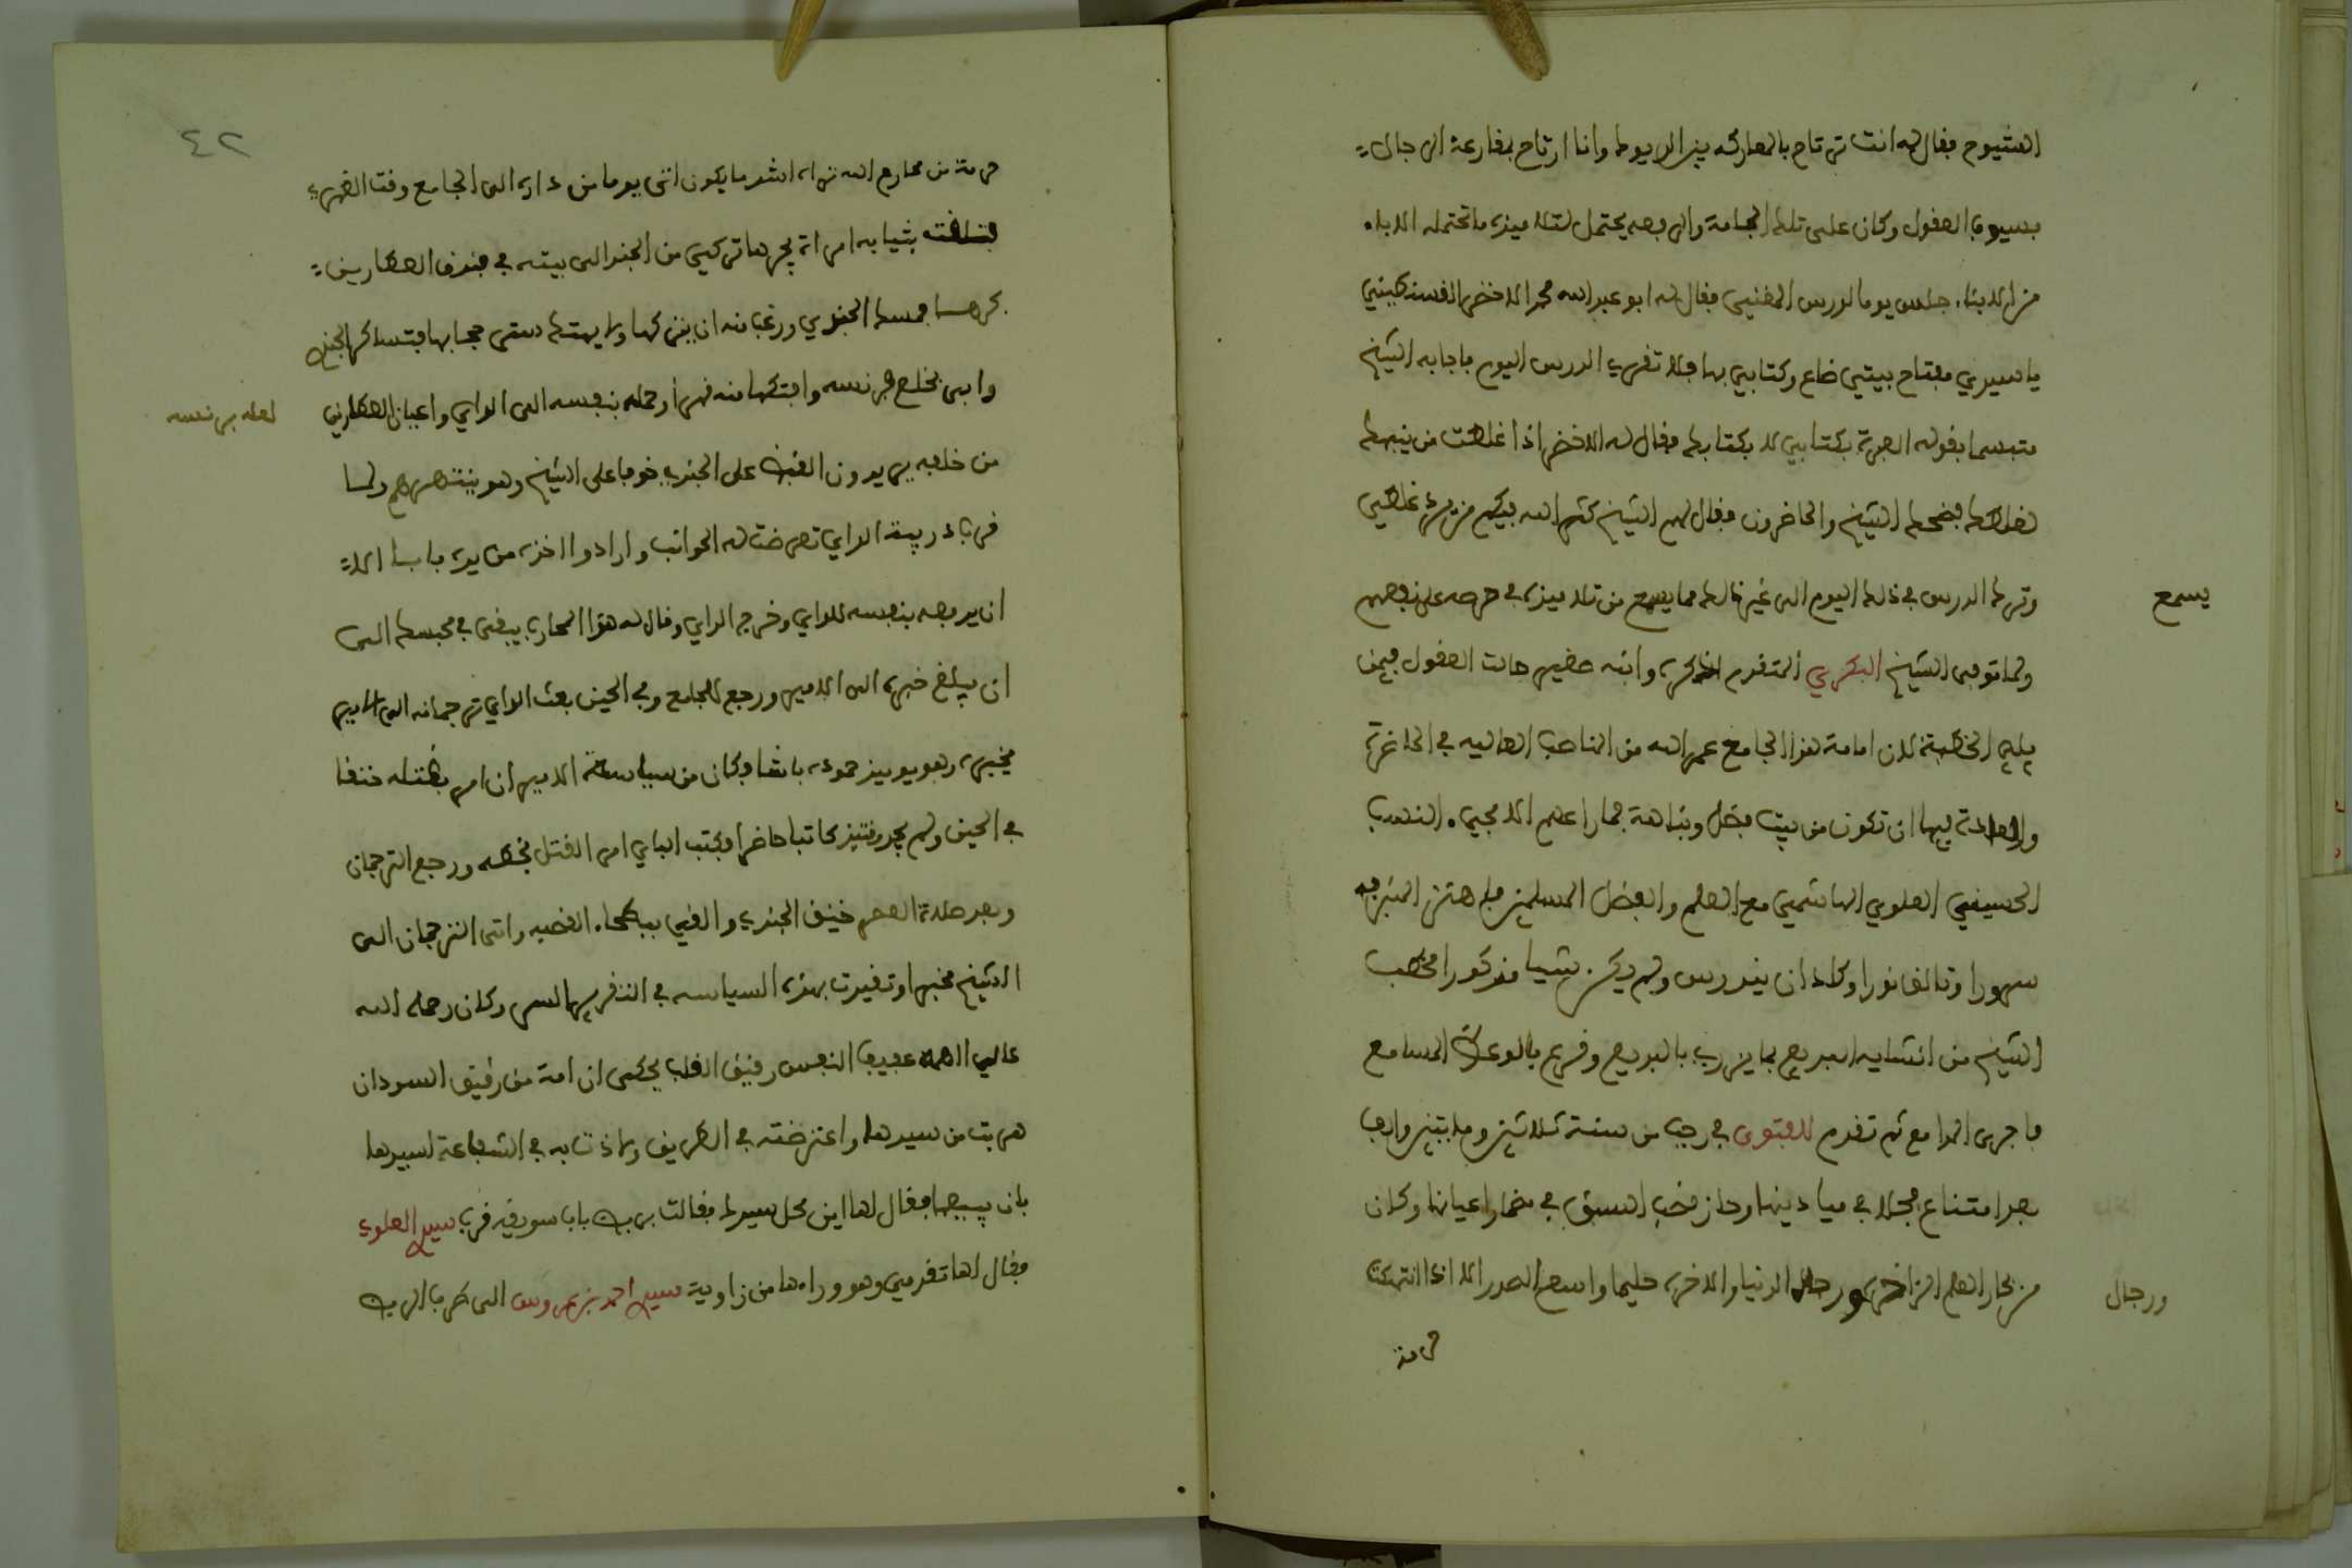 الشيوخ فقال له انت ترتاح بالمعاركه بين الديوك وانا ارتاح بمقارعة الرجال
بسيوف العقول وكان على تلك الجلالة والرفعه يحتمل لتلاميذه ما تحتمله الاباء
من الابناء جلس يوما لدرس المغني فقال له ابو عبد الله محمد الاخضر القسنطيني
يا سيدي مفتاح بيتي ضاع وكتابي بها فلا تقرى الدرس اليوم فاجابه الشيخ
متبسما بقوله العبرة بكتابي لا بكتابك فقال له الاخضر اذا غلطت من ينبهك
لغلطك فضحك الشيخ والحاضرون فقال لهم الشيخ كثر الله فيكم من يرد غلطي
وترك الدرس في ذلك اليوم الى غير ذالك مما يسمع من تلاميذه في حرصه على نفعهم
يسمع
ولما توفى الشيخ البكري المتقدم الذكر وابنه صغير حارت العقول فيمن
يلي الخطبة لان امامة هذا الجامع عمره الله من المناصب العاليه في الحاضرة
والعادة فيها ان تكون من بيت فضل ونباهة فما راعهم الا مجيء النسب
الحسيني العلوي الهاشمي مع العلم والفضل المسلمين فاهتز المنبر به
سرورا وتالق نورا وكاد ان يندرس ولم يكن شيا مذكورا فخطب
الشيخ من انشايه البديع بما يزري بالبديع وقرع بالوعظ المسامع
فاجرى المدامع ثم تقدم للفتوى في رجب من سنة ثلاثين ومايتين والف
بعد امتناع فجلا في ميادينها وحاز قصب السبق في مضمار اعيانها وكان
من بحار العلم الزاخره ورجال الدنيا والاخره حليما واسع الصدر الا اذا انتهكت
ورجال
حرمة
٤٢
حرمة من محارم الله تراه اشد ما يكون اتى يوما من داره الى الجامع وقت الظهر
فتعلقت بثيابه امراة يجرها تركي من الجند الى بيته في فندق العطارين
كرها فمسك الجندي ورغب منه ان يتركها ولا يهتك ستر حجابها فتساكر الجندي
وابى فخلع برنسه وافتكها منه قهرا وحمله بنفسه الى الداي واعيان العطارين
لعله برنسه
من خلفه يريدون القبض على الجندي خوفا على الشيخ وهو ينتهرهم ولما
قرب دريبة الداي تعرضت له الحوانب وارادوا اخذه من يده فابا الا
ان يدفعه بنفسه للداي وخرج الداي وقال له هذا المحارب يبقى في محبسك الى
ان يبلغ خبره الى الامير ورجع للجامع وفي الحين بعث الداي ترجمانه الى الامير
يخبره وهو يوميذ حموده باشا وكان من سياسة الامير ان امر بقتله خنقا
في الحين ولم يجد وقتيذ كاتبا حاضرا فكتب الباي امر القتل بخطه ورجع الترجمان
وبعد صلاة العصر خنق الجندي والقي ببطحاء القصبه واتى الترجمان الى
الشيخ مخبرا وتقيدت بهذه السياسه في النفر لهم السر وكان رحمه الله
عالي الهمة عفيف النفس رقيق القلب يحكى ان امة من رقيق السودان
هربت من سيدها واعترضته في الطريق ولاذت به في الشفاعة لسيدها
بان يبيعها فقال لها اين محل سيدك فقالت بربض باب سويقه قرب سيدي العلوي
فقال لها تقدمي وهو وراءها من زاوية سيدي احمد بن عروس الى طرف الربض